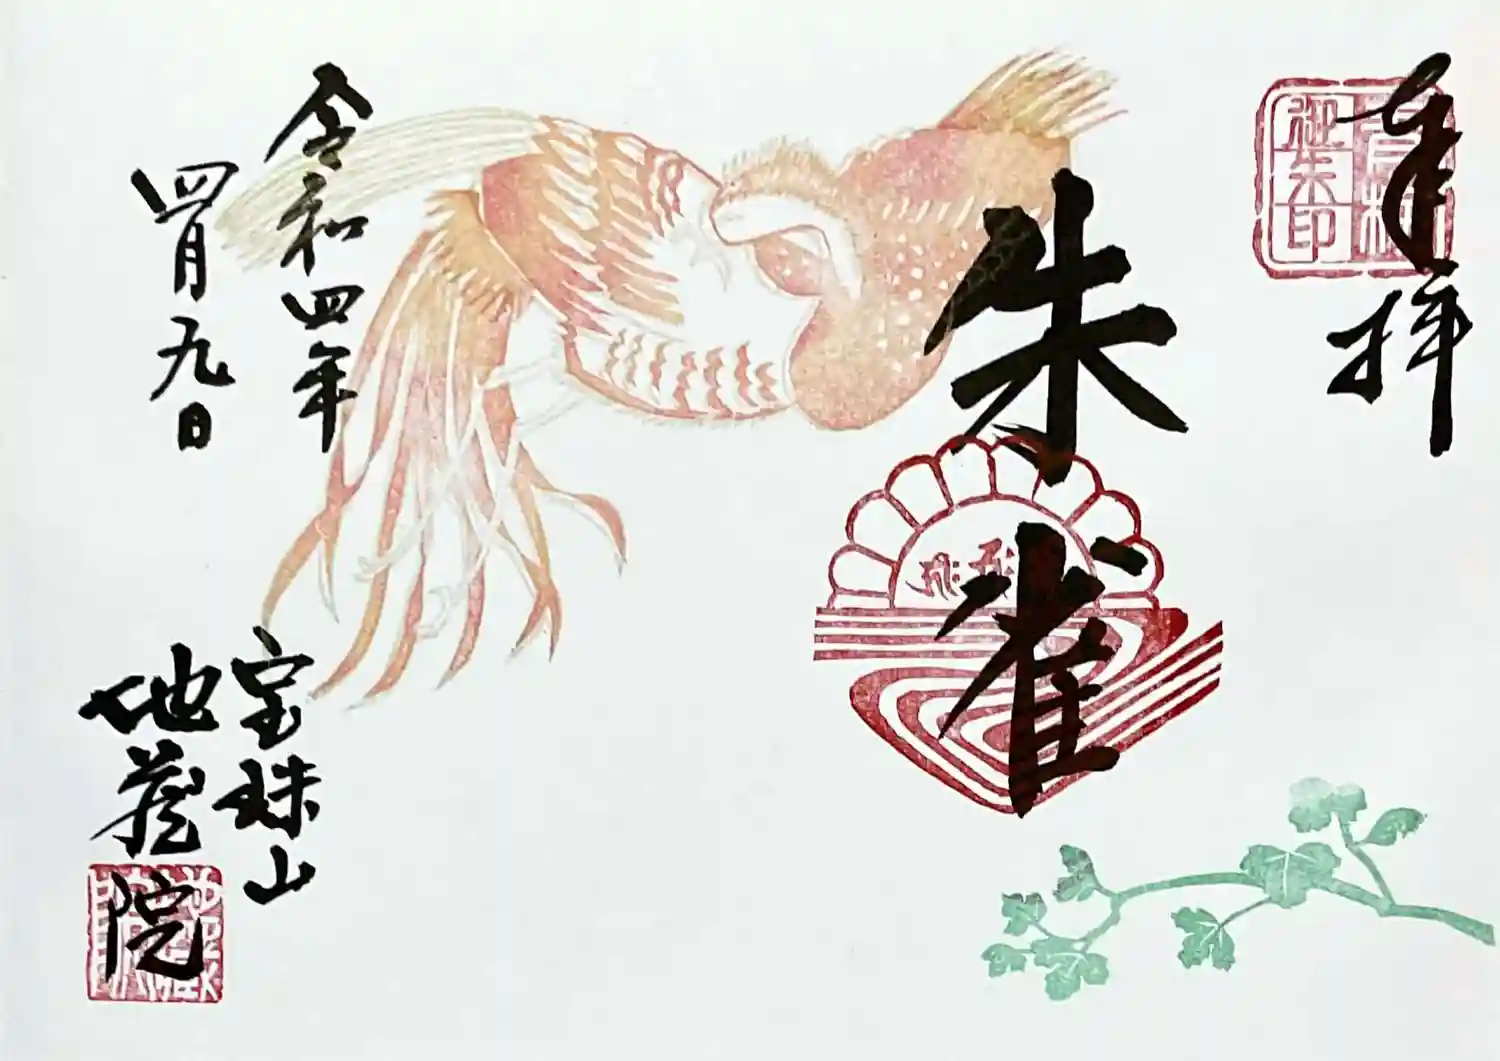 奉拝
御朱印
朱雀
令和四年
四月九日
宝珠山
地蔵院